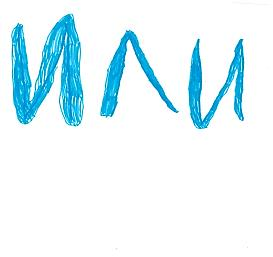 ИЛИ